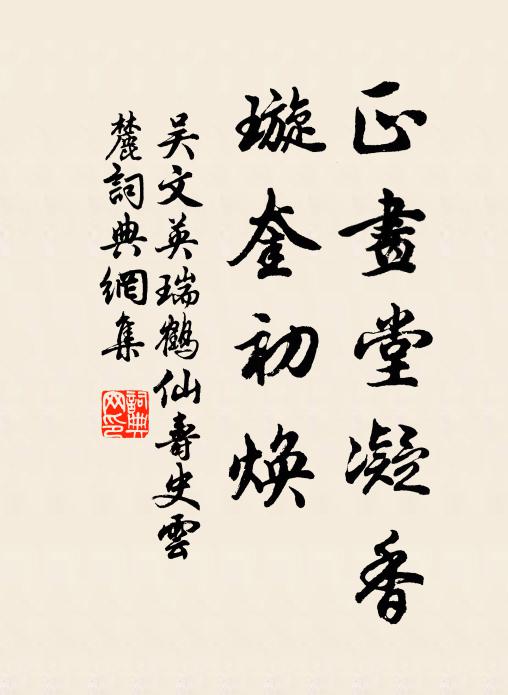 正畫堂凝香
璇奎初煥
吴文英瑞鶴仙壽史雲
麓詞典網集
詞典
网印